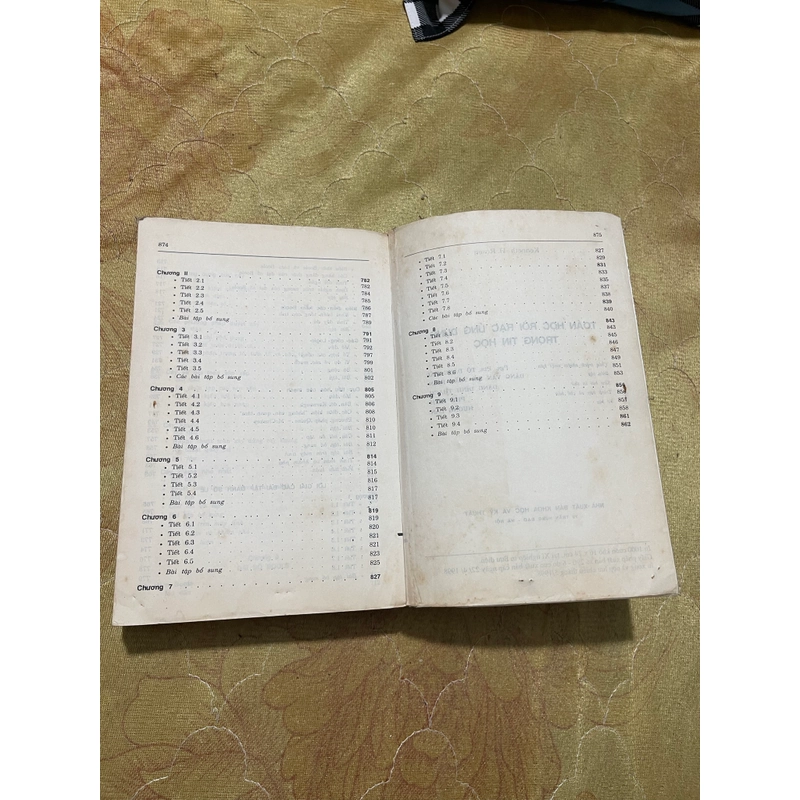 874
Chương II 782
• Tiết 2.1 782
• Tiết 2.2 783
• Tiết 2.3 784
• Tiết 2.4 785
• Tiết 2.5 786
• Bài tập bổ sung 787
789
Chương 3 791
• Tiết 3.1 791
• Tiết 3.2 794
• Tiết 3.3 797
• Tiết 3.4 799
• Tiết 3.5 800
• Các bài tập bổ sung 802
Chương 4 805
• Tiết 4.1 805
• Tiết 4.2 806
• Tiết 4.3 808
• Tiết 4.4 809
• Tiết 4.5 810
• Tiết 4.6 811
• Bài tập bổ sung 812
Chương 5 814
• Tiết 5.1 814
• Tiết 5.2 815
• Tiết 5.3 816
• Tiết 5.4 817
• Bài tập bổ sung 817
Chương 6 819
• Tiết 6.1 819
• Tiết 6.2 820
• Tiết 6.3 821
• Tiết 6.4 821
• Tiết 6.5 823
• Bài tập bổ sung 825
Chương 7 827
875
• Tiết 7.1 827
• Tiết 7.2 829
• Tiết 7.3 831
• Tiết 7.4 833
• Tiết 7.5 835
• Tiết 7.6 837
• Tiết 7.7 838
• Tiết 7.8 839
• Các bài tập bổ sung 840
Chương 8 843
• Tiết 8.1 843
• Tiết 8.2 845
• Tiết 8.3 846
• Tiết 8.4 847
• Tiết 8.5 849
• Tiết 8.6 851
• Bài tập bổ sung 853
Chương 9
• Tiết 9.1
• Tiết 9.2 857
• Tiết 9.3 858
• Tiết 9.4 861
• Bài tập bổ sung 862
TOÁN HỌC RỜI RẠC ỨNG DỤNG
TRONG TIN HỌC